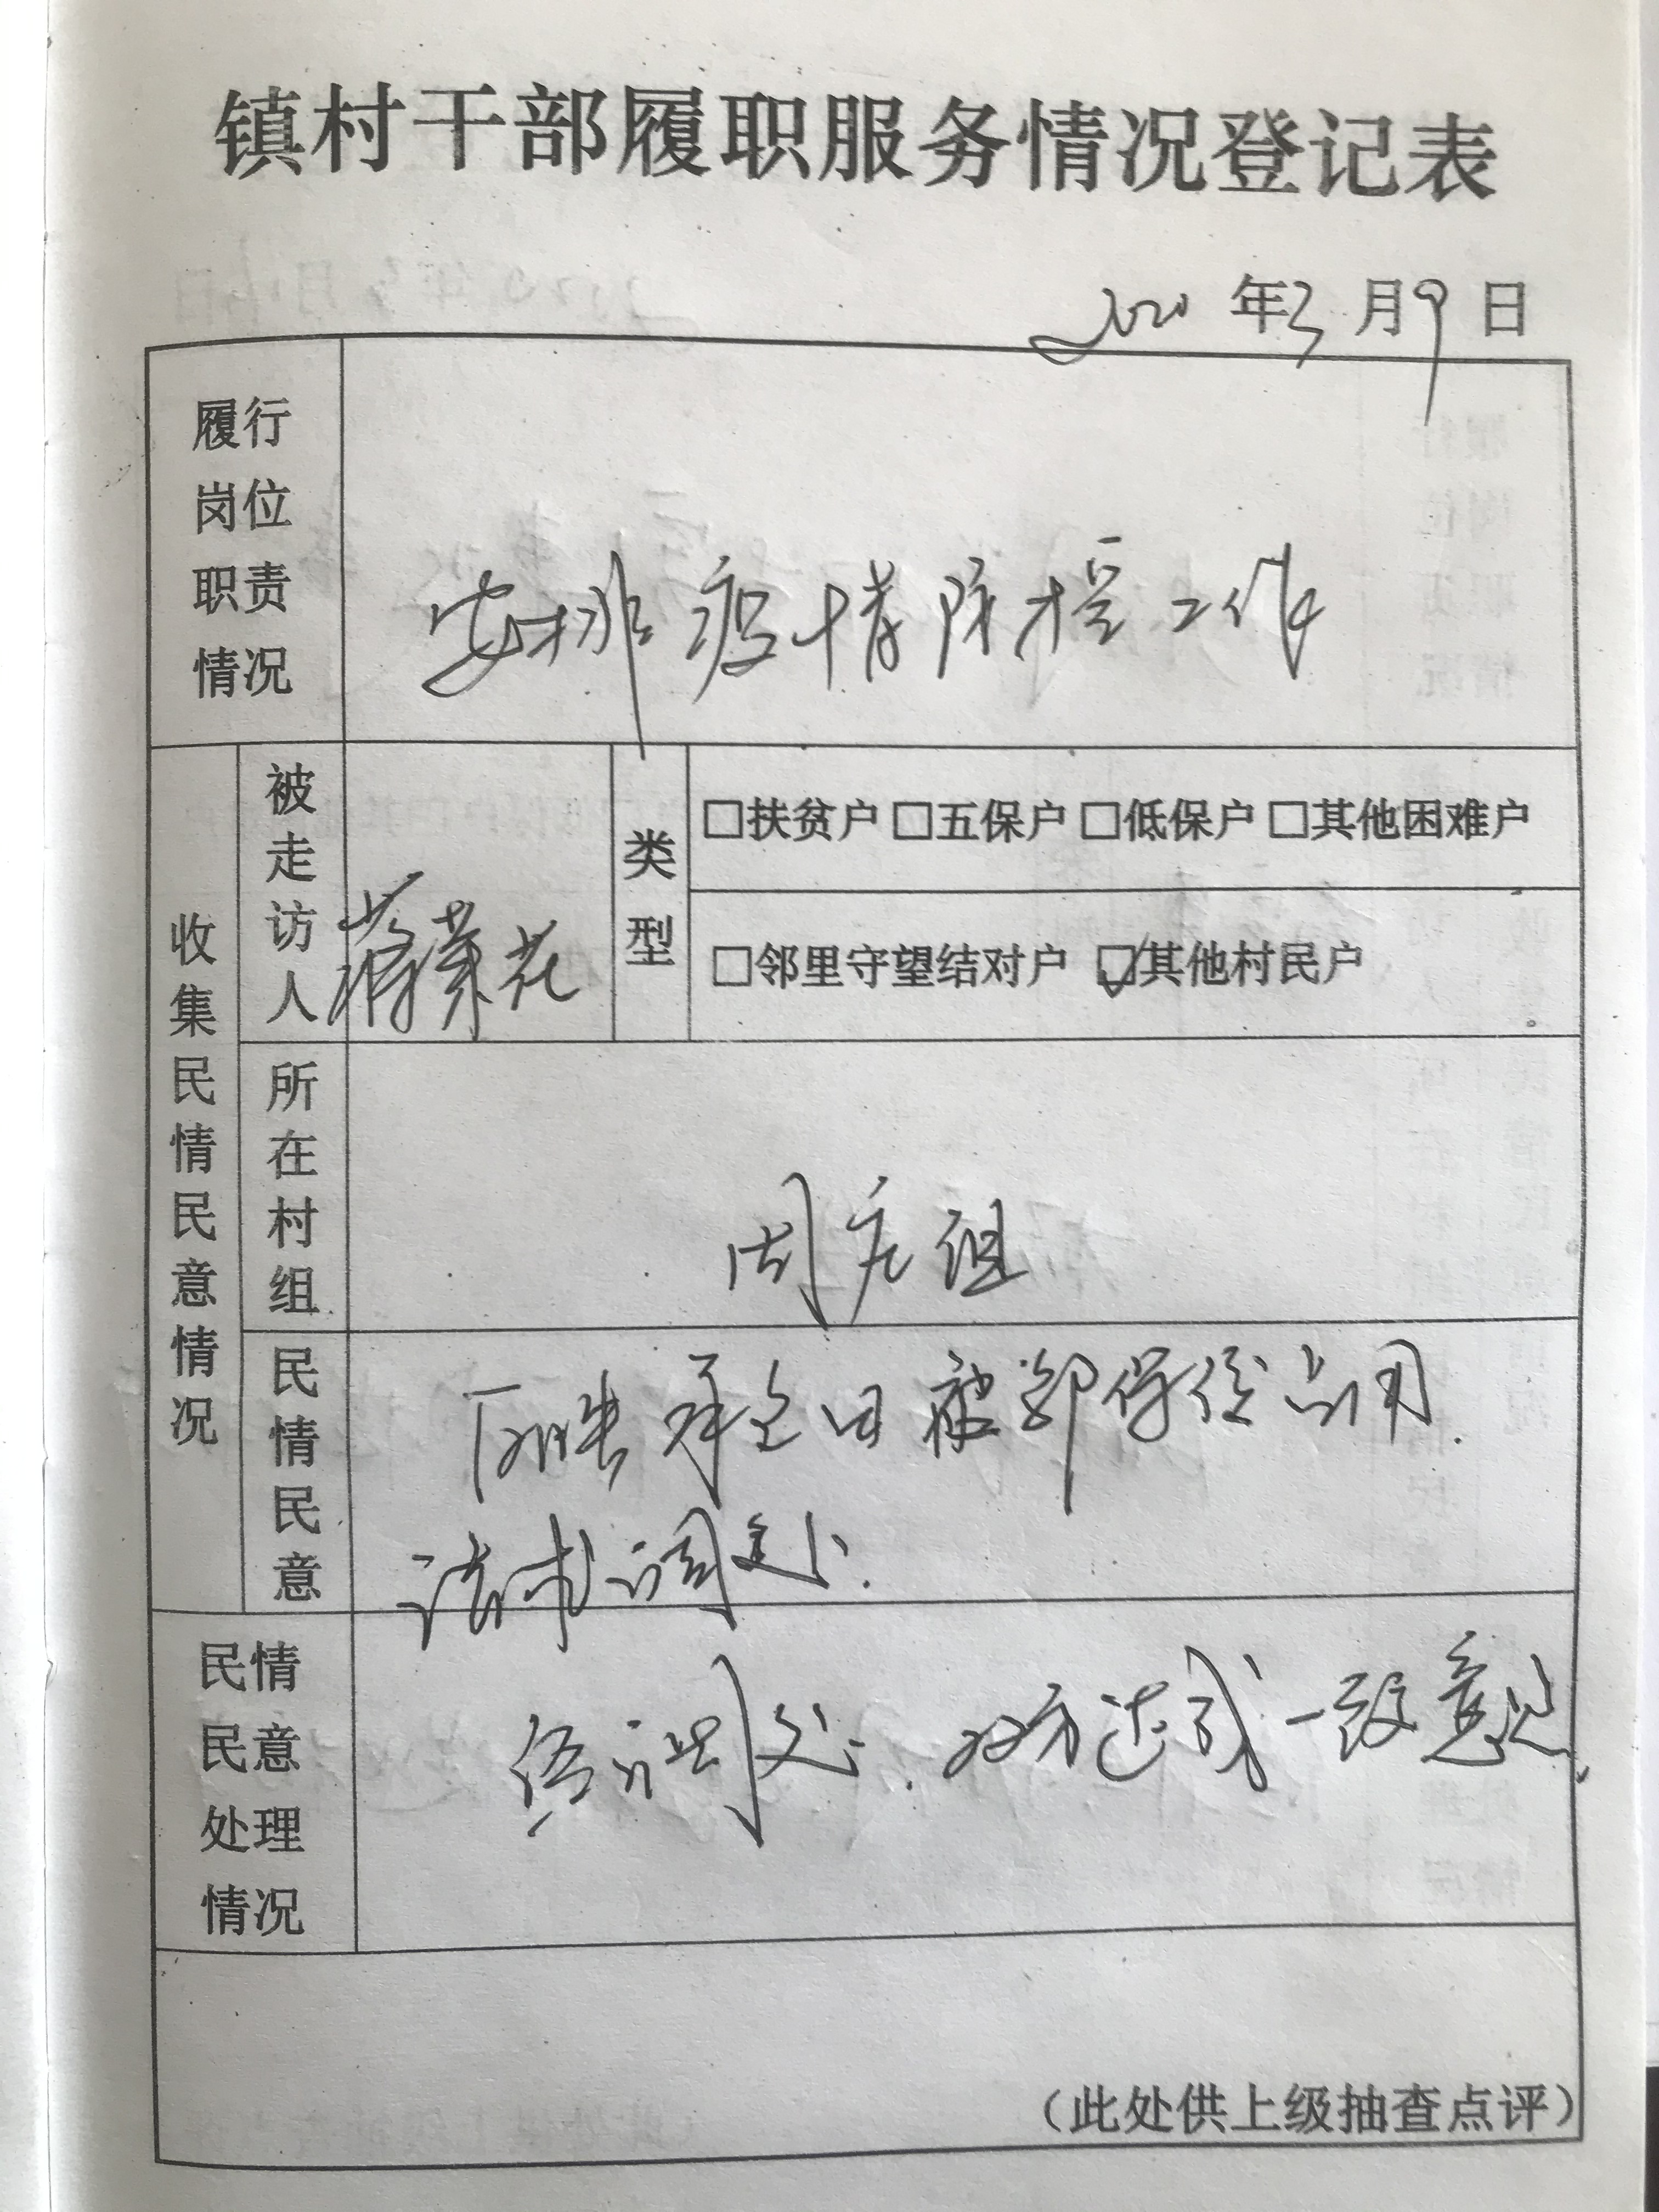 镇村干部履职服务情况登记表
2020年3月9日
履行岗位职责情况
安排疫情防控工作
收集民情民意情况
被走访人
蒋菜花
类型
□扶贫户 □五保户 □低保户 □其他困难户
□邻里守望结对户 ☑其他村民户
所在村组
周庄组
民情民意
反映承包田被邹保信占用.
请求调处.
民情民意处理情况
经调处.双方达成一致意见.
(此处供上级抽查点评)